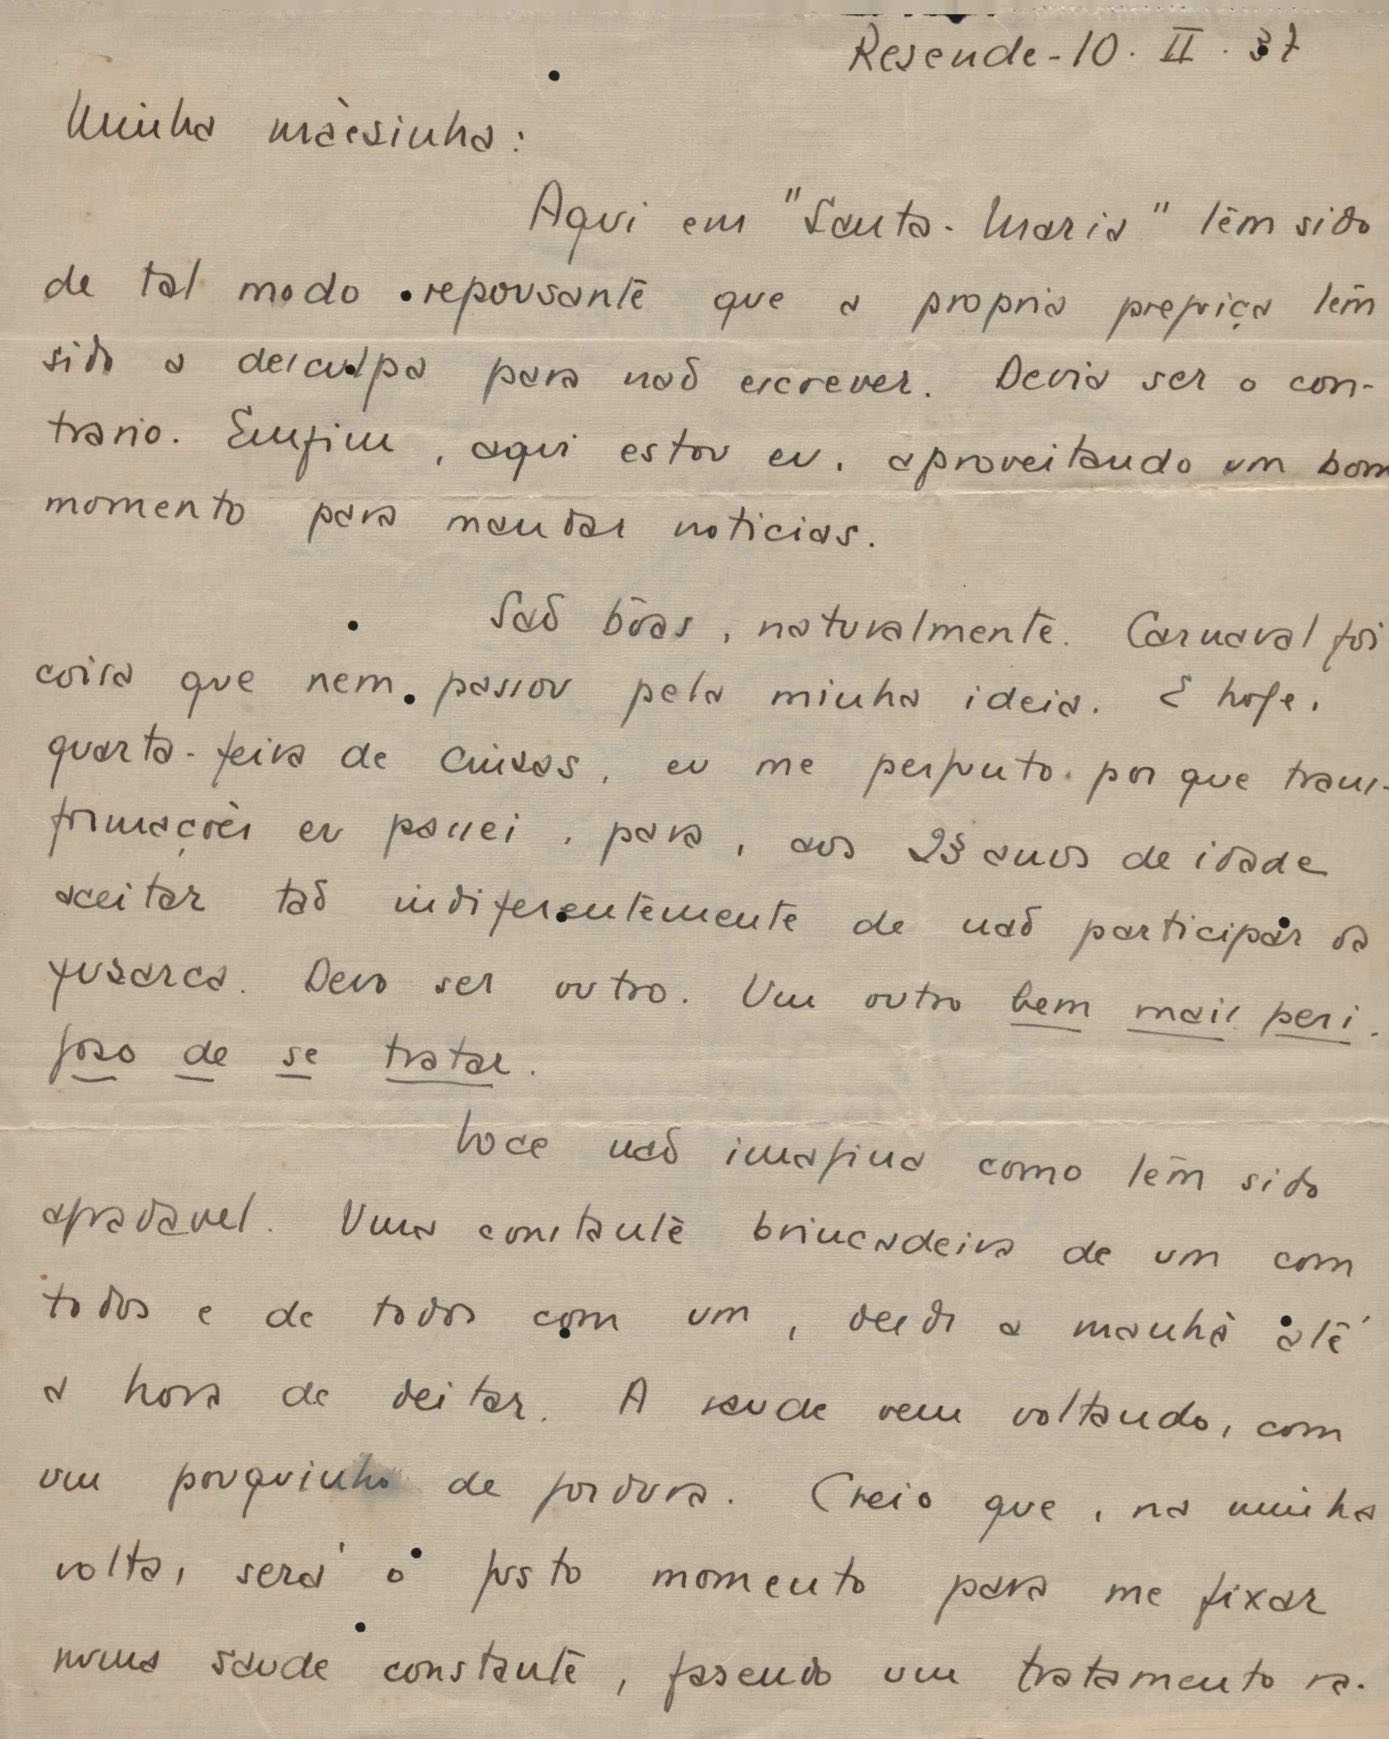 Resende - 10. II. 37
Minha mãesinha:
Aqui em "Santa-Maria" tem sido
de tal modo repousante que a propria preguiça tem
sido a desculpa para não escrever. Devia ser o con-
trario. Emfim, aqui estou eu, aproveitando um bom
momento para mandar noticias.
São bôas, naturalmente. Carnaval foi
coisa que nem passou pela minha ideia. E hoje,
quarta-feira de cinzas, eu me pergunto por que trans-
formações eu passei, para, aos 23 anos de idade
aceitar tão indiferentemente de não participar da
fuzarca. Devo ser outro. Um outro bem mais peri-
goso de se tratar.
Voce não imagina como tem sido
agradavel. Uma constante brincadeira de um com
todos e de todos com um, desde a manhã até
a hora de deitar. A saude vem voltando, com
um pouquinho de gordura. Creio que, na minha
volta, será o justo momento para me fixar
numa saude constante, fazendo um tratamento ra-